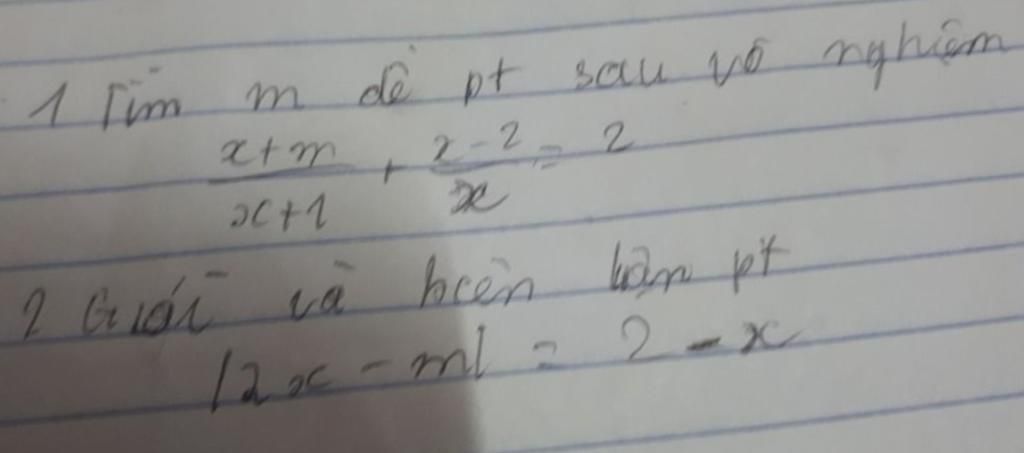 1 Tìm m để pt sau vô nghiệm
x+m/x+1 + x-2/x = 2
2 Giải và biện luận pt
|2x - m| = 2 - x